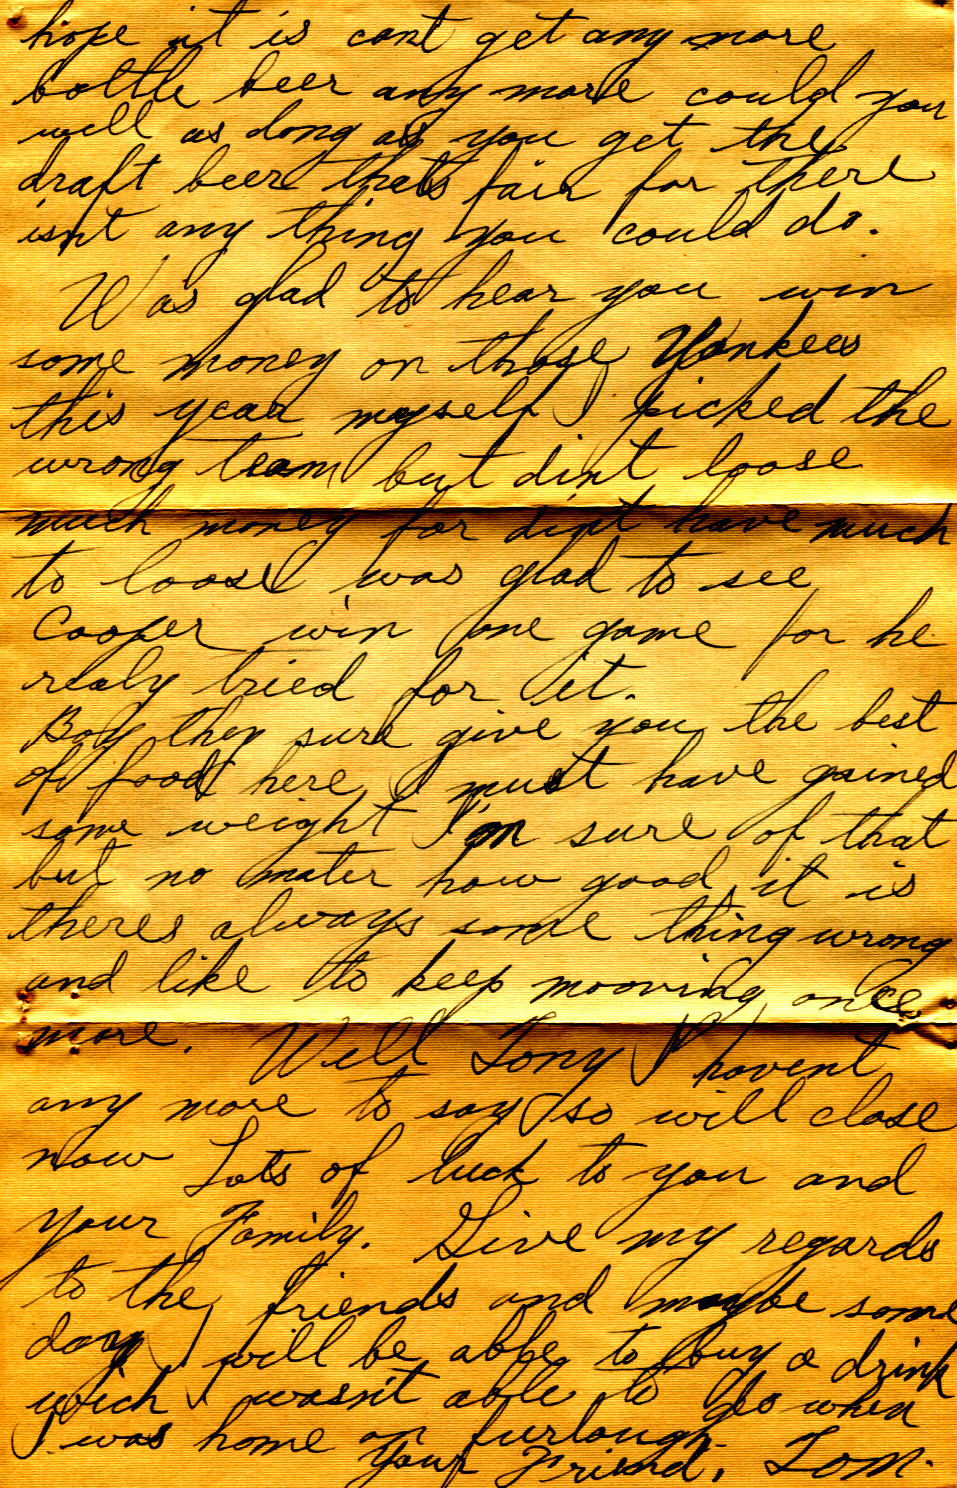 hope it is cant get any more
bottle beer any more could you
well as long as you get the
draft beer thats fair for there
isnt any thing you could do.
Was glad to hear you win
some money on those Yankees
this year myself I picked the
wrong team but dint loose
much money for dint have much
to loose was glad to see
Cooper win one game for he
realy tried for it.
Boy they sure give you the best
of food here I must have gained
some weight I'm sure of that
but no mater how good it is
theres always some thing wrong
and like to keep mooving once
more. Well Tony I havent
any more to say so will close
now Lots of luck to you and
your Family. Give my regards
to the friends and maybe some
day I will be able to buy a drink
wich I wasn't able to do when
I was home on furlough.
Your Friend, Tom.